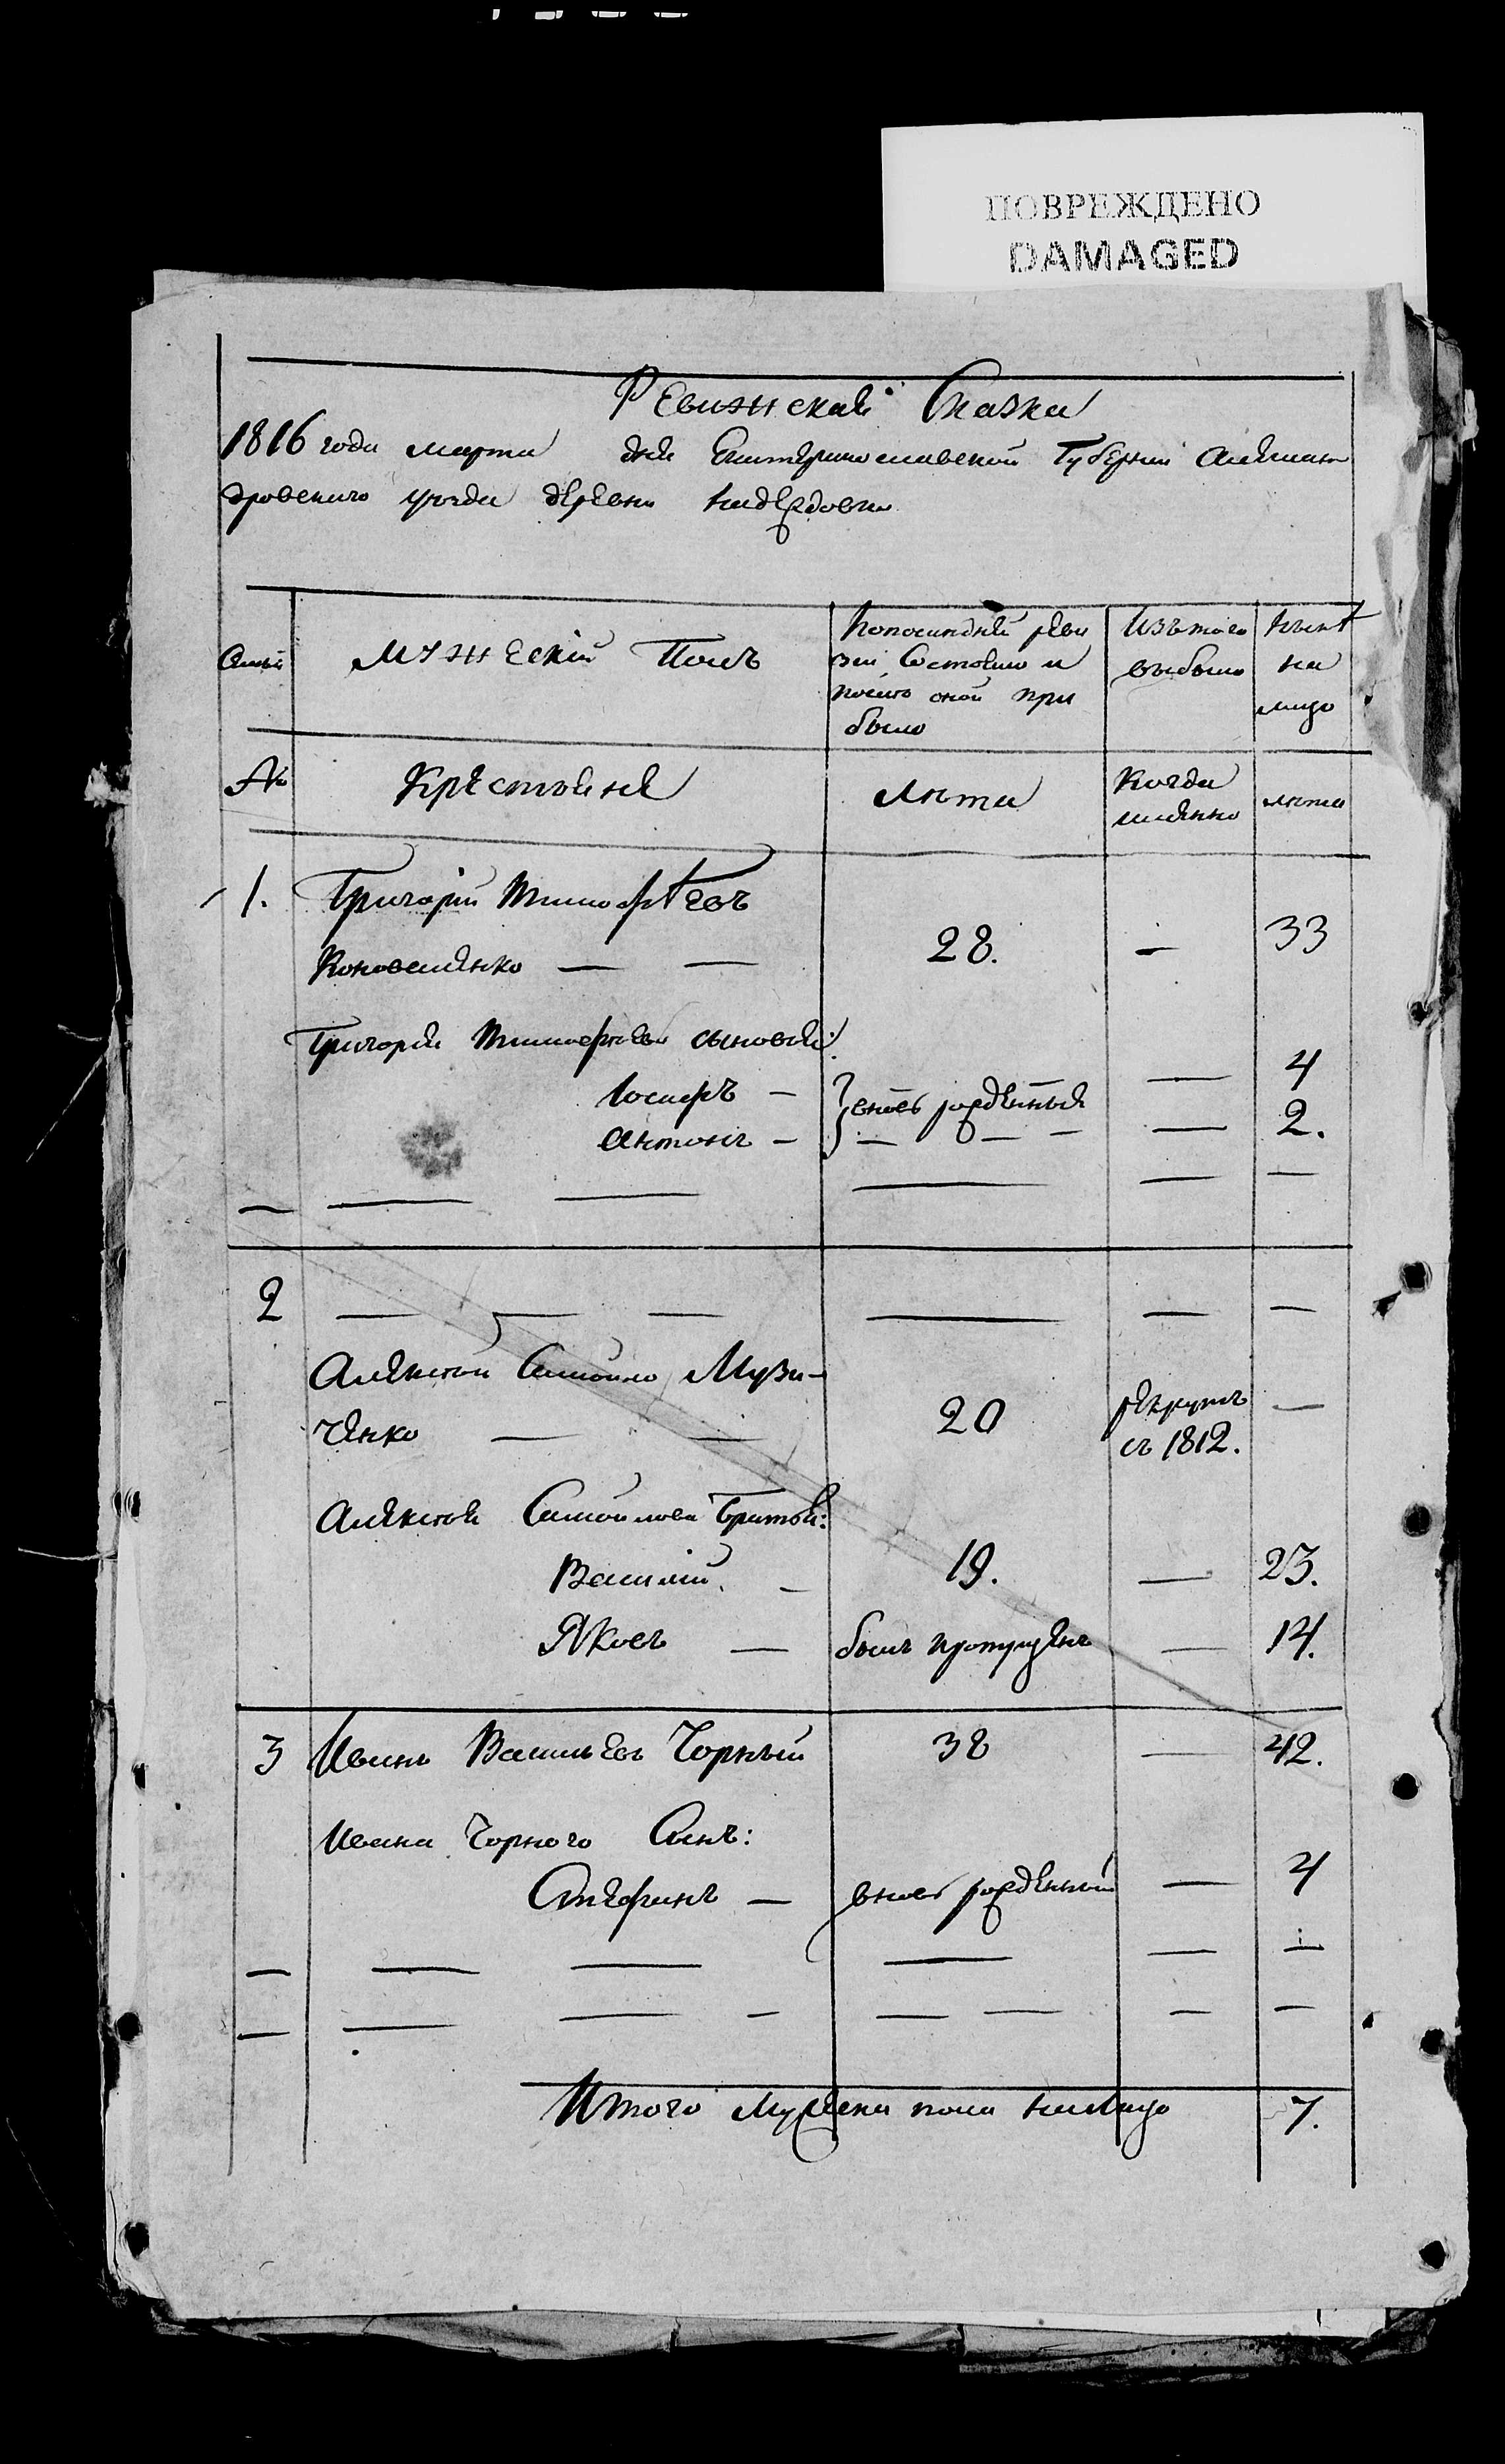 ПОВРЕЖДЕНО
DAMAGED
Ревижская Сказка
1816 года марта дня Екатеринославской Губернии Алексан
дровского уезда деревни Надеждовки
Семьи
Мужеский Полъ
Попоследней реви
зии Состояло и
после оной при
было
Изътого
выбыло
Ныне
на
лицо
№
Крестьяне
Лета
Когда
именно
лета
1. Григорий Тимофеевъ
Коноваленко — — 28. — 33
Григория Тимофеева сыновья:
Иосифъ — вновь рожденныя — 4
Антонъ — — — — — 2.
2 — — — — — —
Алексей Самойло Музи-
ченко — — 20 рекрутъ
съ 1812. —
Алексея Самойлова Братья:
Василий — 19. — 23.
Яковъ — былъ пропущенъ — 14.
3 Иванъ Васильевъ Чорный 38 — 42.
Ивана Чорного Сынъ:
Стефанъ — вновь рожденный — 4
Итого Мужеска пола налицо 7.